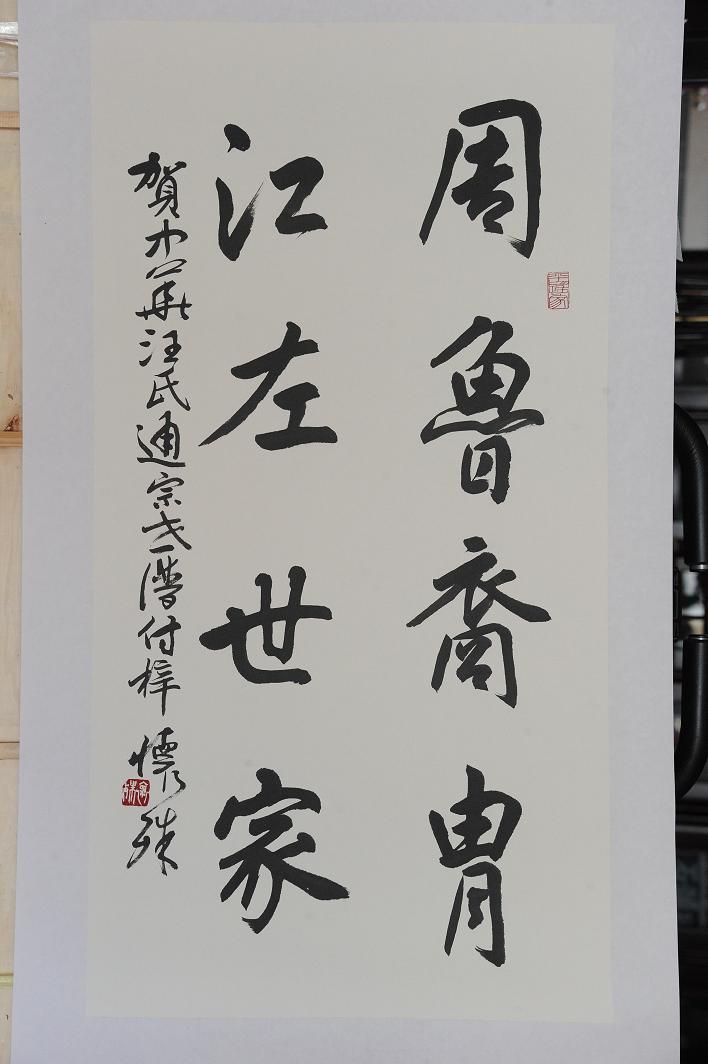 周魯裔冑
江左世家
賀中華汪氏通宗世譜付梓